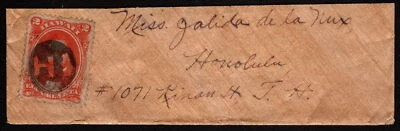 2 HAWAII 2
Miss. Zalida de la Nux
Honolulu
#1071 Kinau H. T. H.